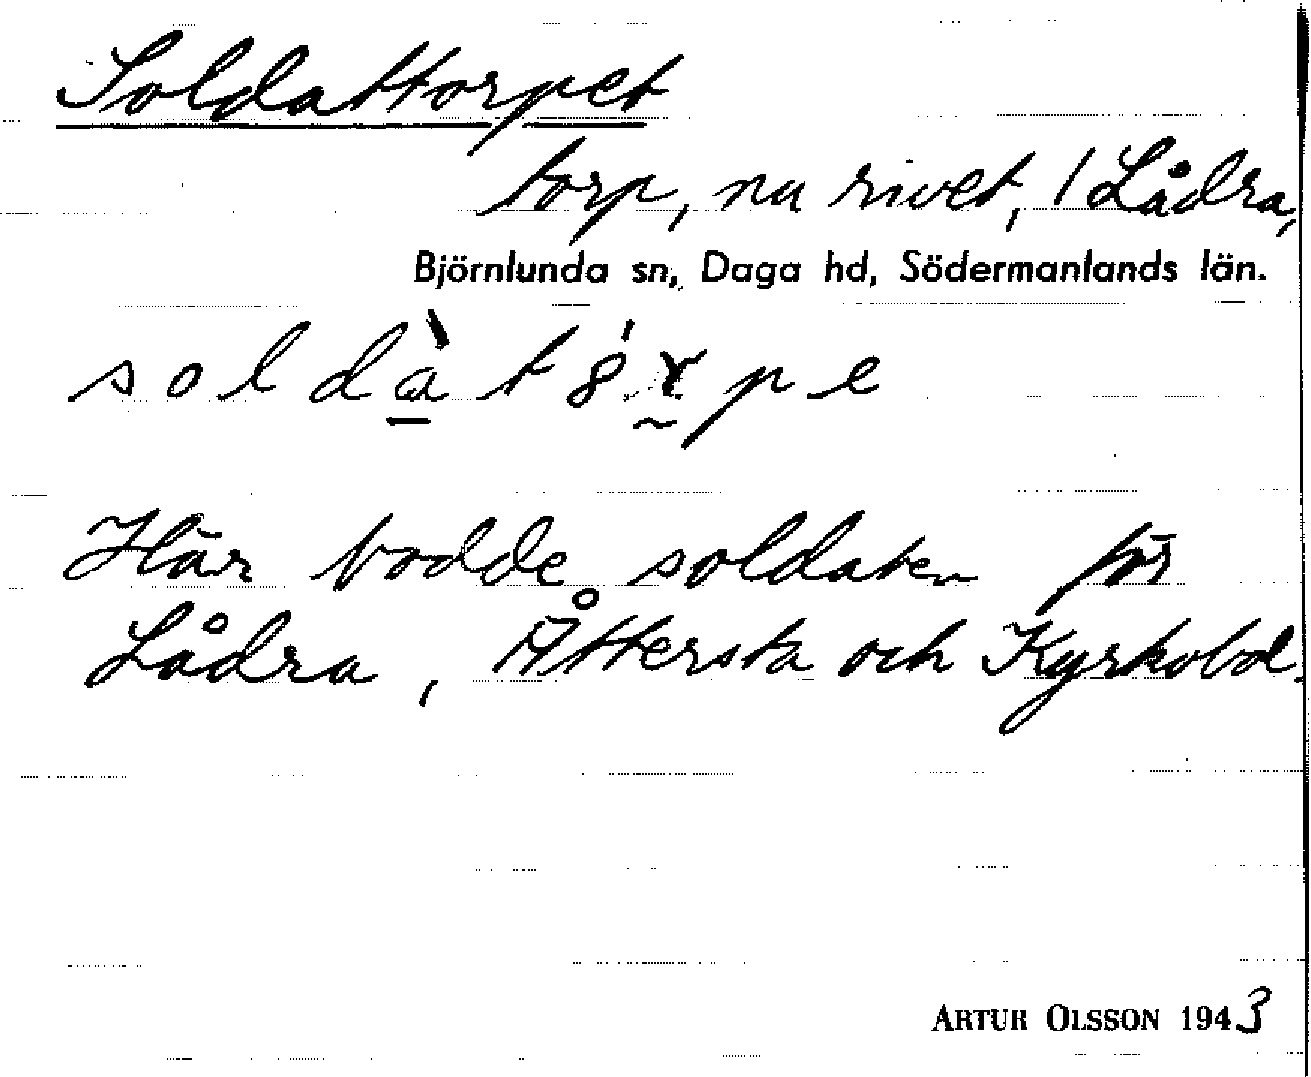 Soldattorpet
torp, nu rivet, / Lådra,
Björnlunda sn, Daga hd, Södermanlands län.
Här bodde soldaten för
Lådra, Åttersta och Kyrkobol.
ARTUR OLSSON 1943